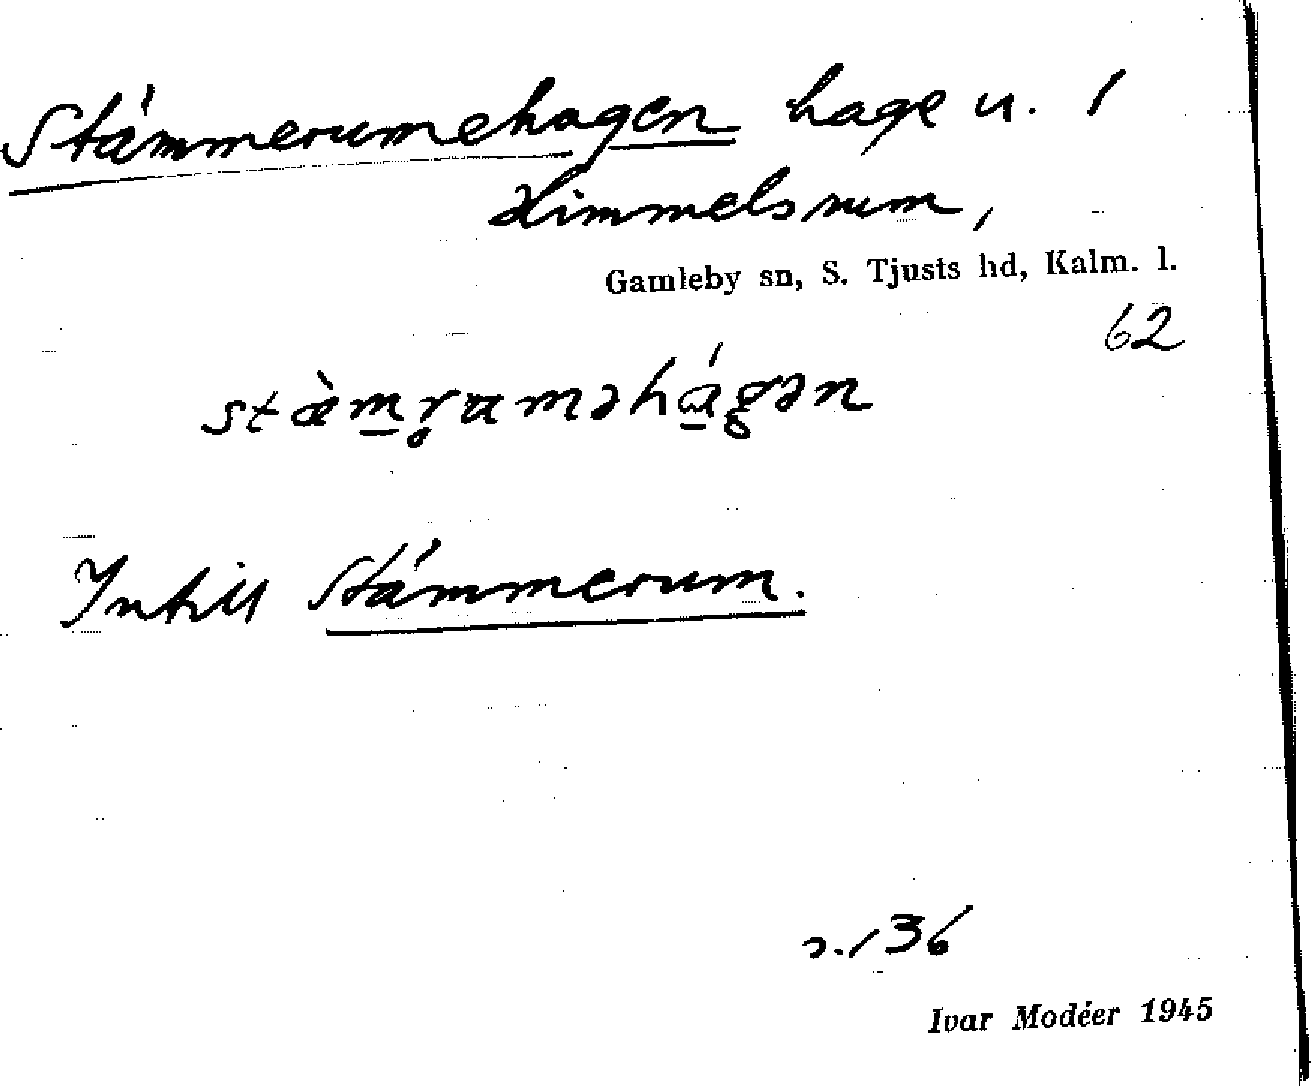 Stämmerumehagen hage u. 1
Himmelsrum,
Gamleby sn, S. Tjusts hd, Kalm. l.
62
stæ̀m̲r̥uməhɑ̲́gən
Intill Stämmerum.
s. 136
Ivar Modéer 1945